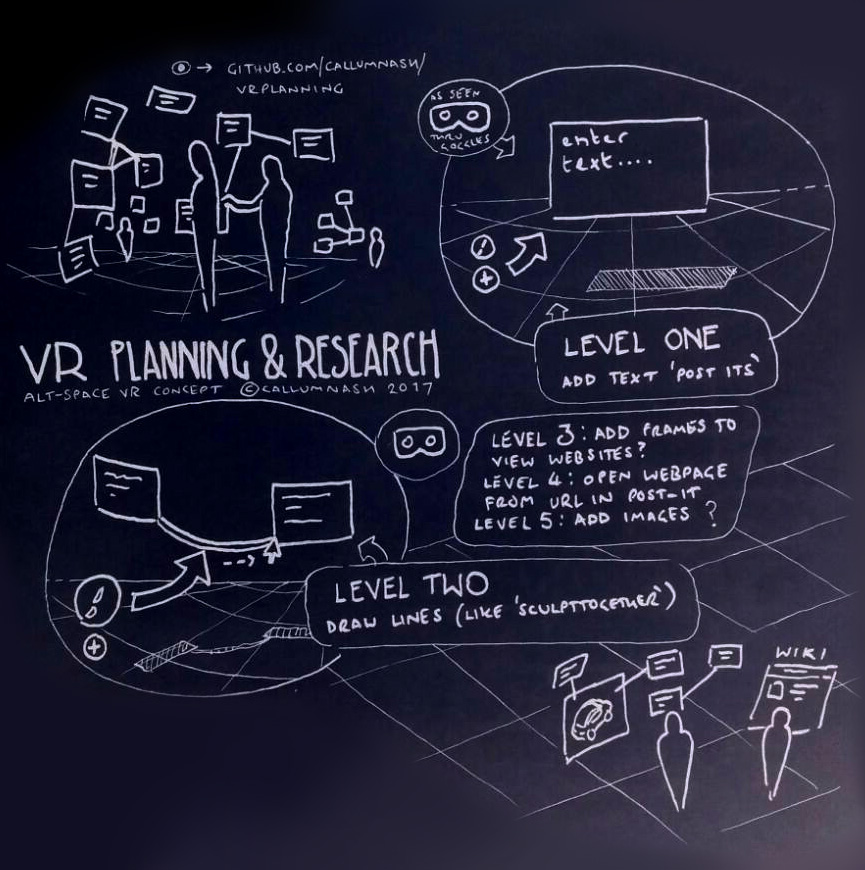 GITHUB.COM/CALLUMNASH/
VRPLANNING
AS SEEN
THRU
GOGGLES
enter
text....
LEVEL ONE
ADD TEXT 'POST ITS'
VR PLANNING & RESEARCH
ALT-SPACE VR CONCEPT ©CALLUMNASH 2017
LEVEL 3: ADD FRAMES TO
VIEW WEBSITES?
LEVEL 4: OPEN WEBPAGE
FROM URL IN POST-IT
LEVEL 5: ADD IMAGES ?
LEVEL TWO
DRAW LINES (LIKE 'SCULPTTOGETHER')
WIKI